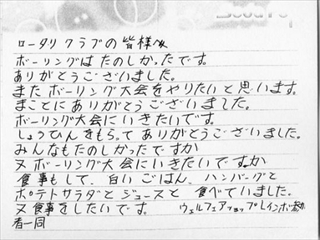 ロータリクラブの皆様へ
ボーリングはたのしかったです。
ありがとうございました。
またボーリング大会をやりたいと思います。
まことにありがとうございました。
ボーリング大会にいきたいです。
しょうひんをもらってありがとうございました。
みんなもたのしかったですか
又ボーリング大会にいきたいですか
食事もして、白いごはん、ハンバーグと
ポテトサラダとジュースと食べていました。
又食事をしたいです。 ウェルフェアショップレインボー
者一同